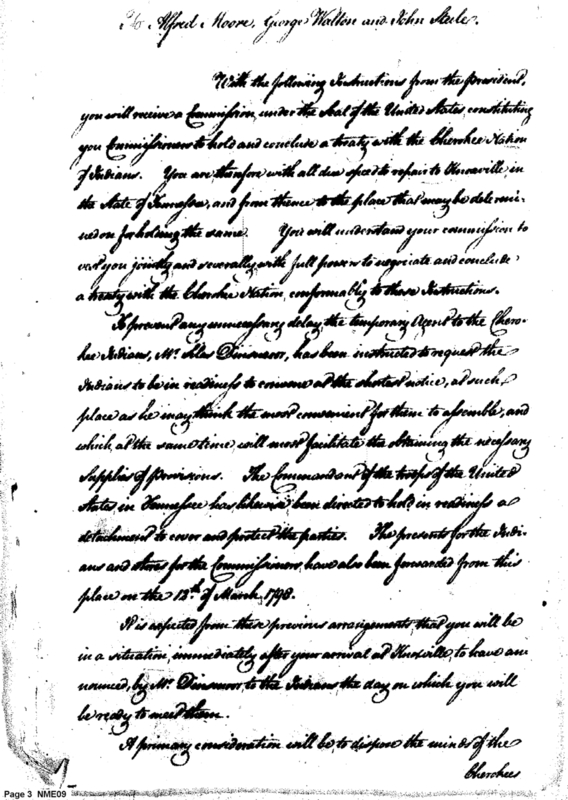 To Alfred Moore, George Walton and John Steele.
With the following Instructions from the president,
you will receive a Commission, under the Seal of the United States, constituting
you Commissioners to hold and conclude a treaty with the Cherokee Nation
of Indians. You are therefore with all due speed to repair to Knoxville, in
the State of Tennessee, and from thence to the place that may be determi-
ned on for holding the same. You will understand your commission to
vest you jointly and severally, with full powers to negociate and conclude
a treaty with the Cherokee Nation, conformably to these Instructions.
To prevent any unnecessary delay, the temporary Agent to the Chero-
kee Indians, Mr. Silas Dinsmoor, has been instructed to request the
Indians to be in readiness to convene at the shortest notice, at such
place as he may think the most convenient for them to assemble, and
which, at the same time, will most facilitate the obtaining the necessary
Supplies of provisions. The Commandant of the troops of the United
States in Tennessee has likewise been directed to hold in readiness a
detachment to cover and protect the parties. The presents for the Indi-
ans and stores for the Commissioners, have also been forwarded from this
place on the 13th of March, 1798.
It is expected from these previous arrangements, that you will be
in a situation, immediately after your arrival at Knoxville, to have an-
nounced, by Mr. Dinsmoor, to the Indians, the day on which you will
be ready to meet them.
A primary consideration will be, to dispose the minds of the
Cherokees
Page 3 NME09